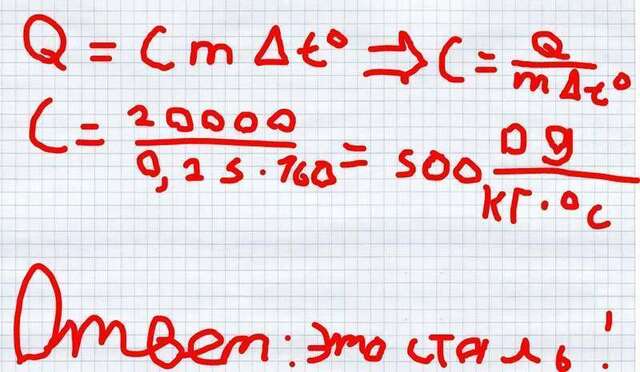 Q = C m Δt° ⇒ C = Q / m Δt°
C = 20000 / 0,25 · 160 = 500 Дж / кг · °C
Ответ: это сталь!